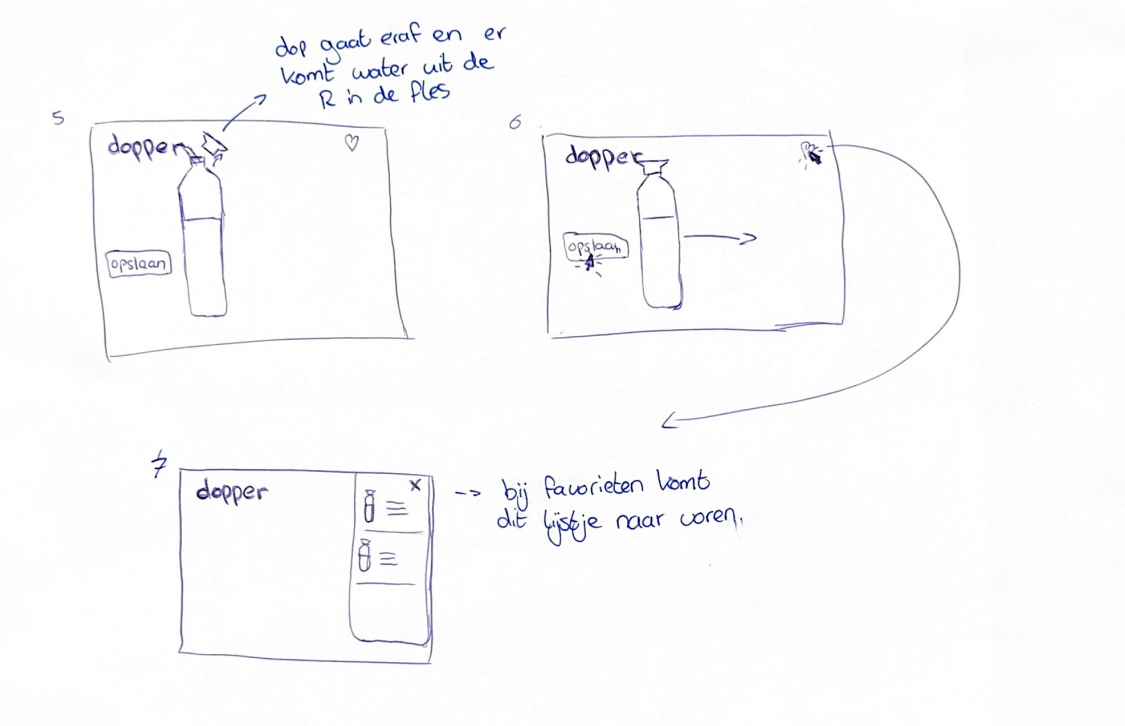 dop gaat eraf en er
komt water uit de
R in de fles
5
dopper
opslaan
6
dopper
opslaan
7
dopper
x
--> bij favorieten komt
dit lijstje naar voren.